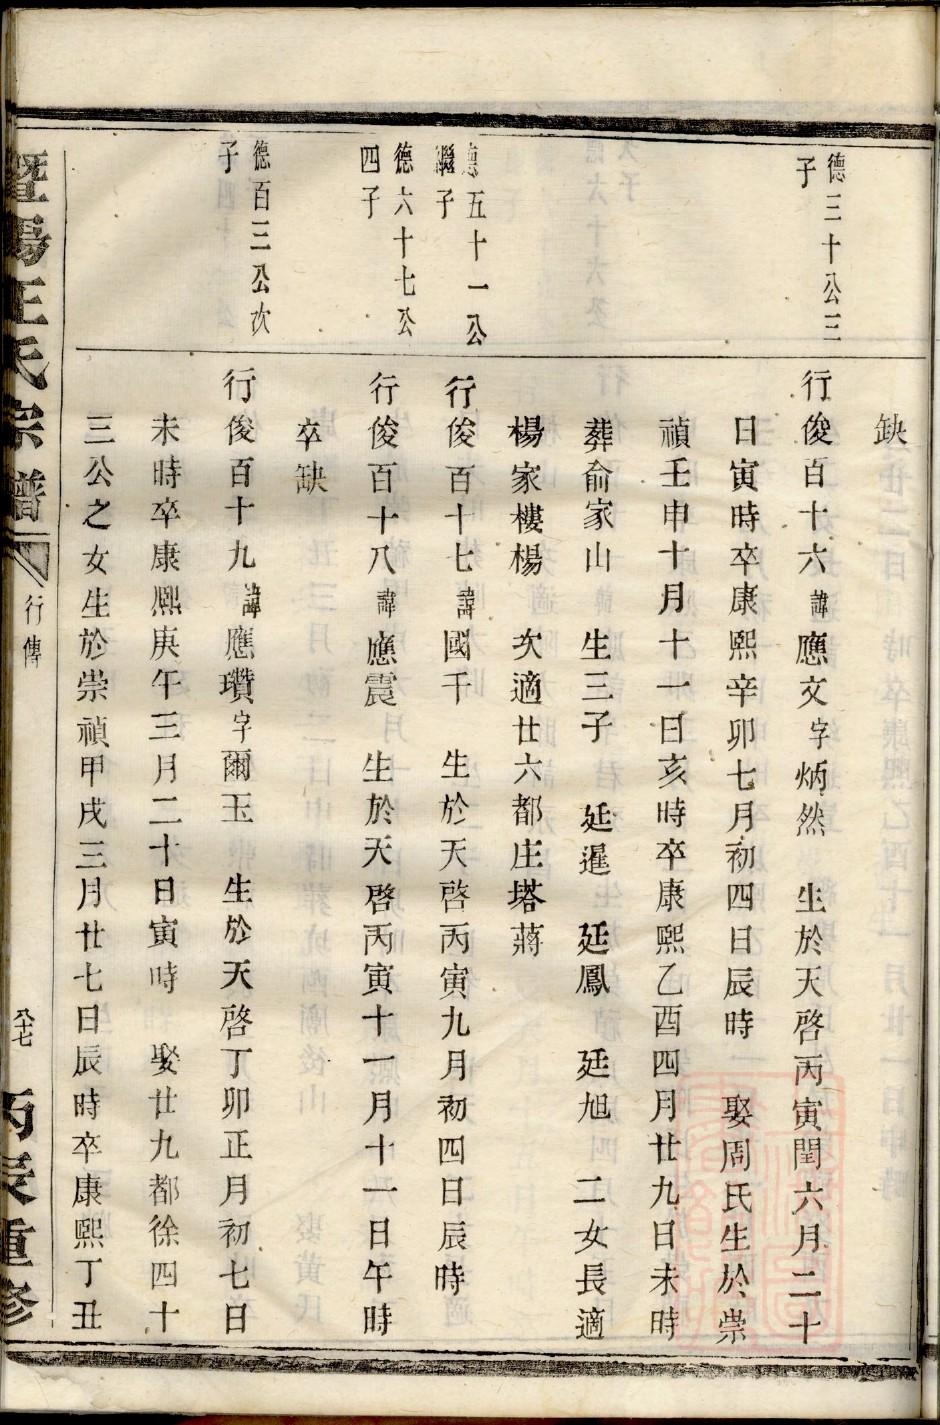 缺
德三十公三
子
行俊百十六諱應文字炳然 生於天啓丙寅閏六月二十
日寅時卒康熙辛卯七月初四日辰時 娶周氏生於崇
禎壬申十月十一日亥時卒康熙乙酉四月廿九日未時
葬俞家山 生三子 廷暹 廷鳳 廷旭 二女長適
楊家樓楊 次適廿六都庄塔蔣
德五十一公
繼子
行俊百十七諱國千 生於天啓丙寅九月初四日辰時
德六十七公
四子
行俊百十八諱應震 生於天啓丙寅十一月十一日午時
卒缺
德百三公次
子
行俊百十九諱應瓚字爾玉 生於天啓丁卯正月初七日
未時卒康熙庚午三月二十日寅時 娶廿九都徐四十
三公之女生於崇禎甲戌三月廿七日辰時卒康熙丁丑
暨陽王氏宗譜
行傳
八十七
丙辰重修